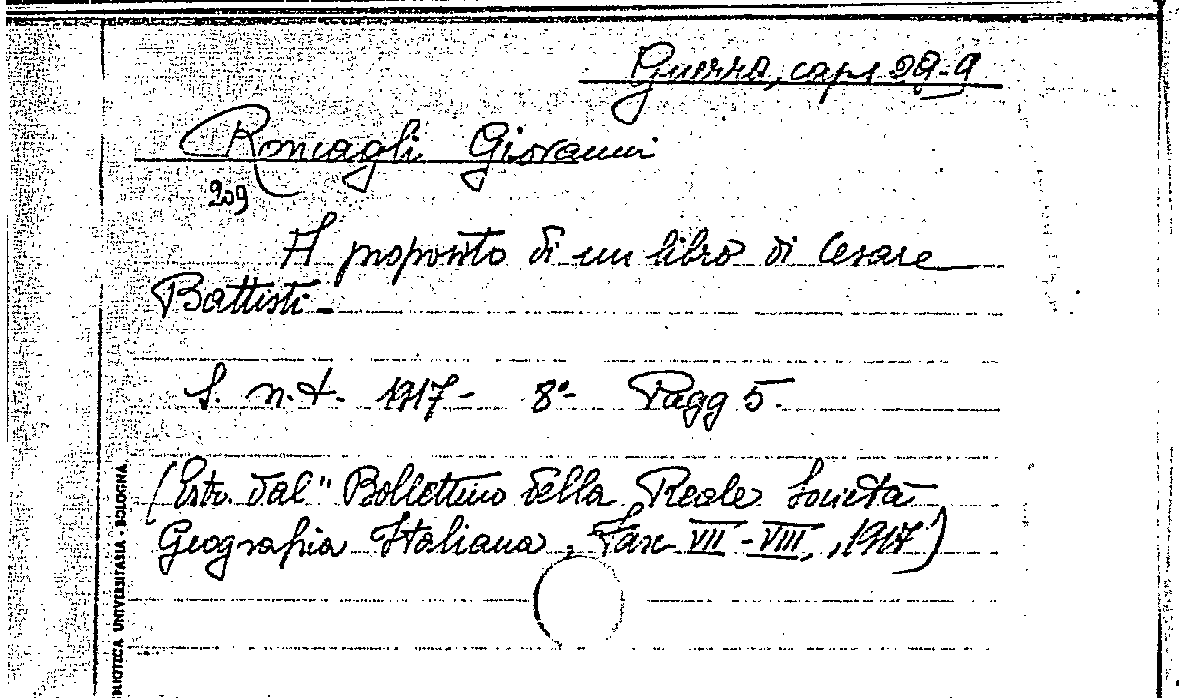 Guerra, caps 29-9
Roncagli Giovanni
209
A proposito di un libro di Cesare
Battisti -
S. n. t. 1917 - 8° - Pagg 5.
(Estr. dal "Bollettino della Reale Società
Geografia Italiana, Fasc VII - VIII, , 1917)
BIBLIOTECA UNIVERSITARIA - BOLOGNA